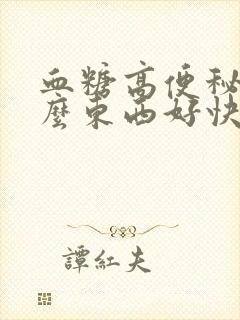 血糖高便秘
麼東西好快
譚紅夫